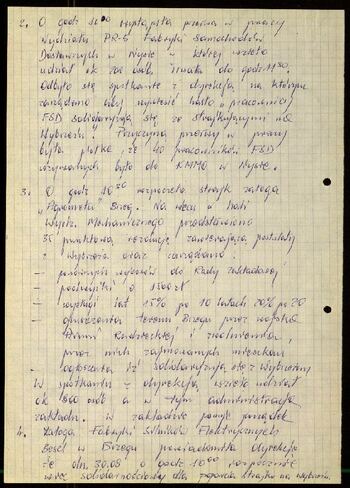 2. O godz 10⁰⁰ wystąpiła przerwa w pracy
Wydziału PR-5 Fabryki Samochodów
Dostawczych w Nysie w której wzięło
udział ok 200 osób, trwała do godz 11³⁰.
Odbyło się spotkanie z dyrekcją na którym
zażądano aby wywiesić hasło "pracownicy
FSD solidaryzują się ze strajkującymi na
Wybrzeżu". Przyczyną przerwy w pracy
była plotka, że 40 pracowników FSD
wzywanych było do KMMO w Nysie.
3. O godz 10²⁰ rozpoczęła strajk załoga
"Agromet" Brzeg. Na wiecu w hali
Wydz. Mechanicznego przedstawiono
35 punktową rezolucję zawierającą postulaty
z Wybrzeża oraz zażądano:
- ponownych wyborów do Rady Zakładowej
- podwyżki o 1500 zł
- wysługi lat 15% po 10 latach 20% po 20
- opuszczenia terenu Brzegu przez wojska
Armii Radzieckiej i zwolnienia,
przez nich zajmowanych mieszkań
- ogłoszenia iż solidaryzują się z Wybrzeżem
W spotkaniu z dyrekcją wzięło udział
ok 800 osób a w tym administracja
zakładu. W zakładzie panuje porządek
4. Załoga Fabryki Silników Elektrycznych
Besel w Brzegu powiadomiła dyrekcję
że dn. 30.08 o godz 10⁰⁰ rozpocznie
wiec solidarnościowy dla poparcia strajku na wybrzeżu.